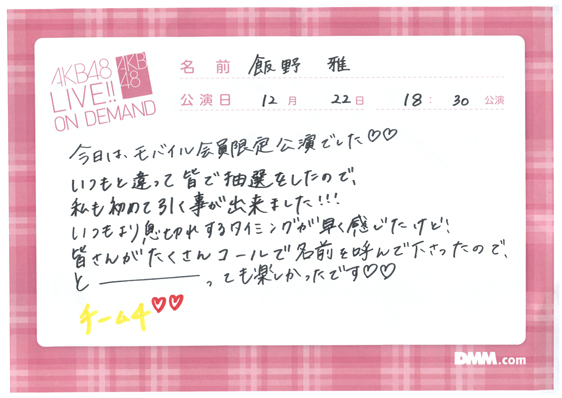 AKB48
LIVE!!
ON DEMAND
AKB
48
名 前 飯野 雅
公演日 12月 22日 18:30 公演
今日は、モバイル会員限定公演でした♡♡
いつもと違って皆で抽選をしたので、
私も初めて引く事が出来ました!!!
いつもより息切れするタイミングが早く感じたけど、
皆さんがたくさんコールで名前を呼んで下さったので、
と―――っても楽しかったです♡♡
チーム4♡♡
DMM.com